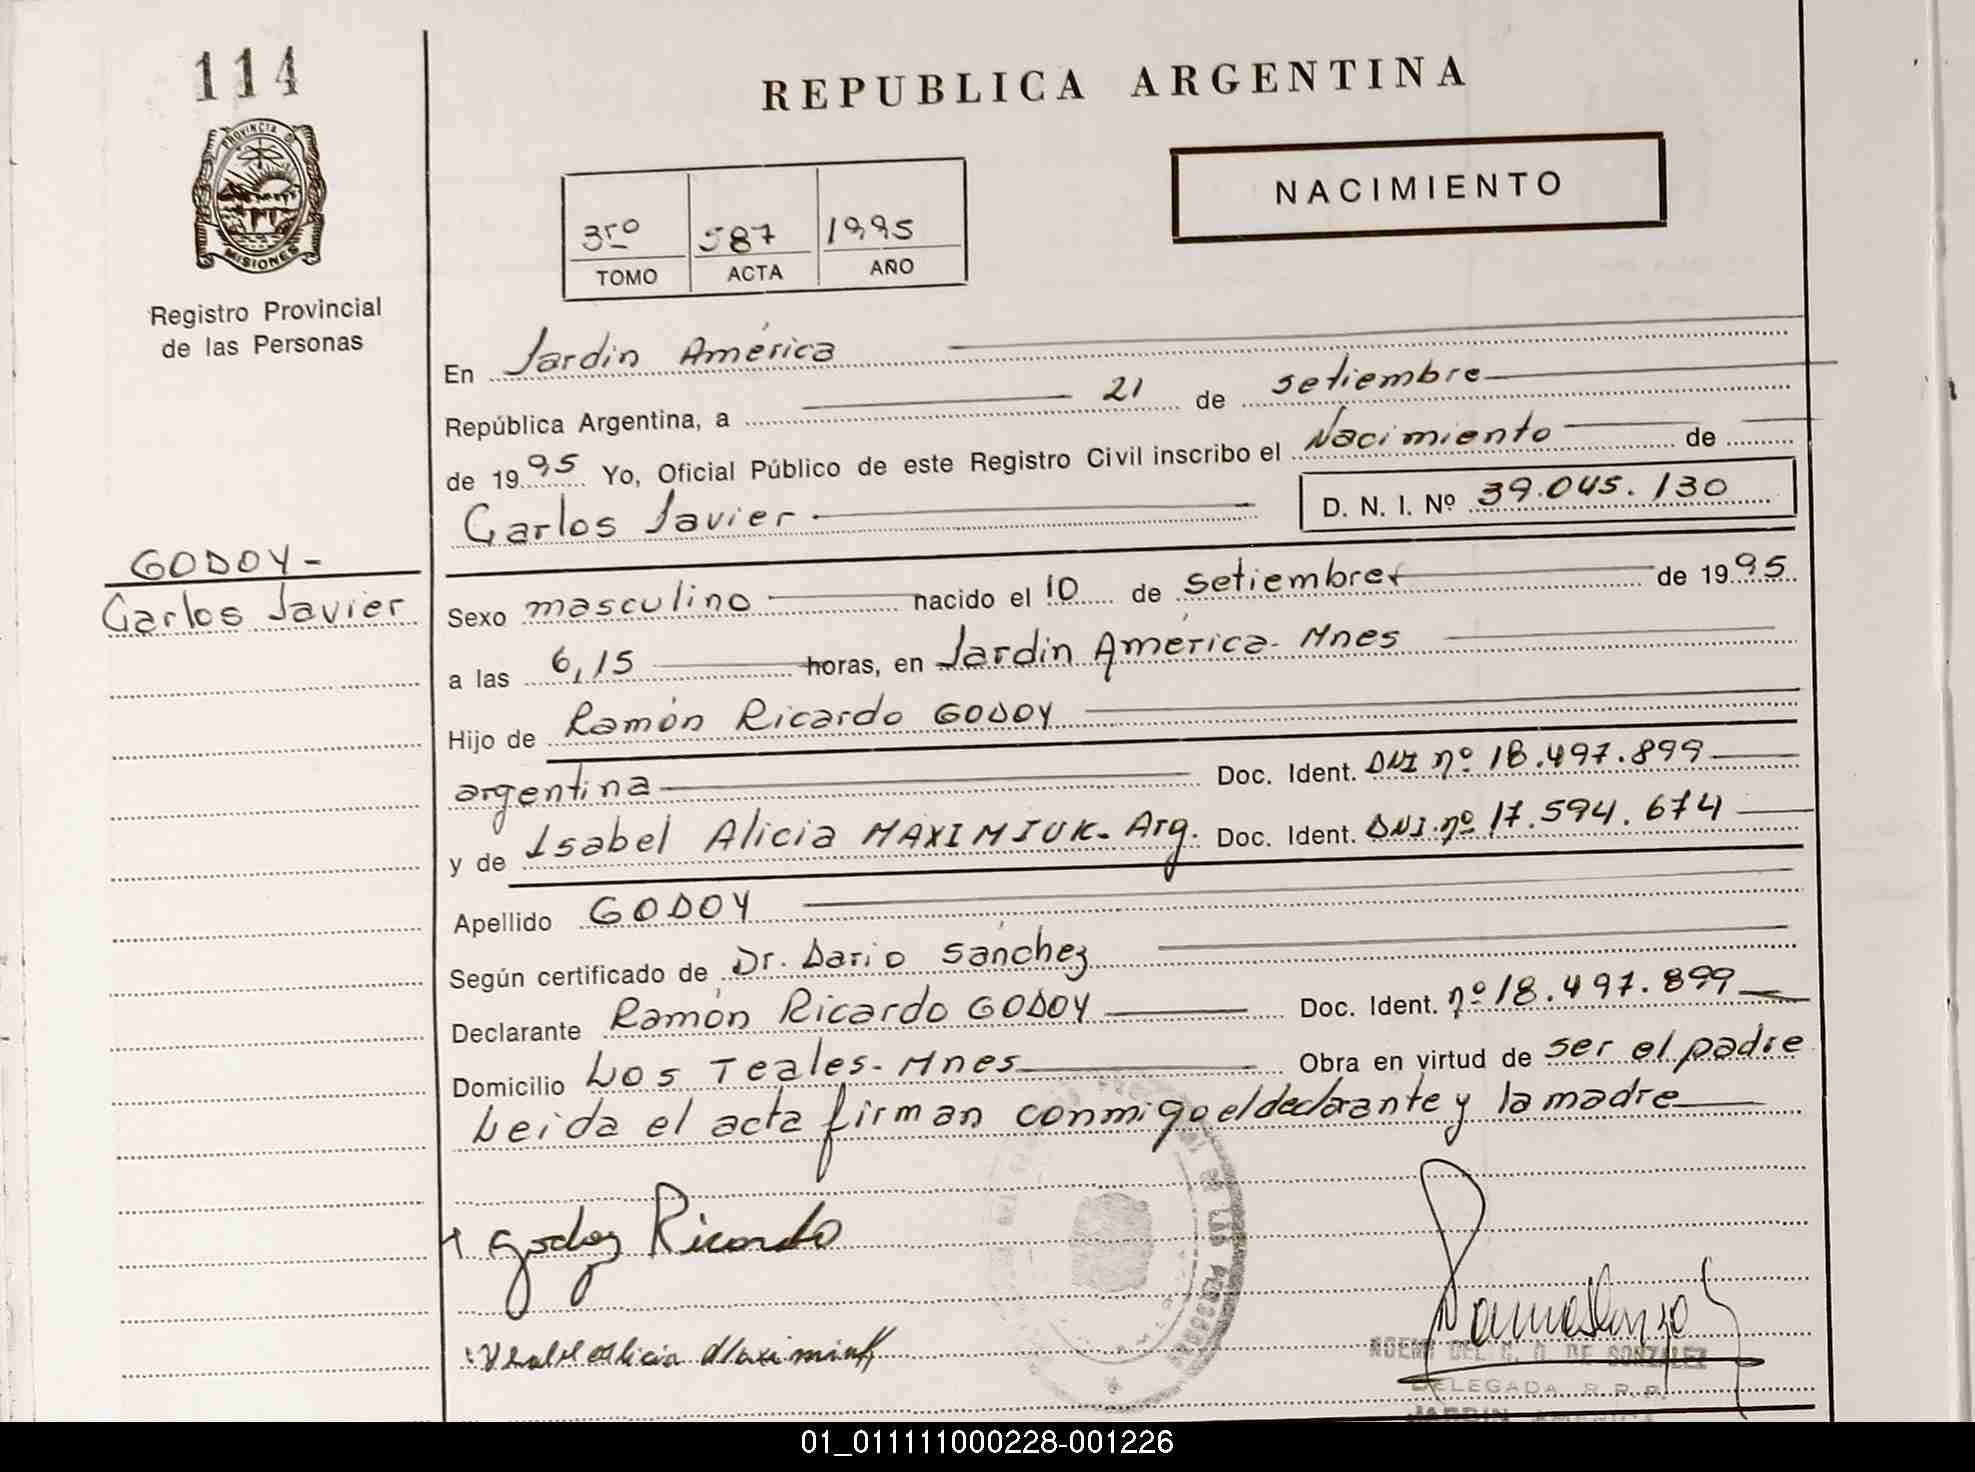 114
REPUBLICA ARGENTINA
NACIMIENTO
PROVINCIA D
MISIONES
Registro Provincial
de las Personas
3ro 587 1995
TOMO ACTA AÑO
En Jardín América
República Argentina, a 21 de setiembre
de 1995 Yo, Oficial Público de este Registro Civil inscribo el Nacimiento de
Carlos Javier D. N. I. Nº 39.045.130
GODOY-
Carlos Javier
Sexo masculino nacido el 10 de setiembre de 1995
a las 6,15 horas, en Jardín América- Mnes
Hijo de Ramón Ricardo GODOY
argentina Doc. Ident. DNI nº 18.497.899
y de Isabel Alicia MAXIMIUK- Arg. Doc. Ident. DNI.nº 17.594.674
Apellido GODOY
Según certificado de Dr. Dario Sánchez
Declarante Ramón Ricardo GODOY Doc. Ident. nº 18.497.899
Domicilio Los Teales- Mnes Obra en virtud de ser el padre
Leida el acta firman conmigo el declarante y la madre
Godoy Ricardo
DE LAS PERSONAS
DEL C. D. DE GONZALEZ
DELEGADA R.P.P.
JARDIN AMERICA
01_011111000228-001226